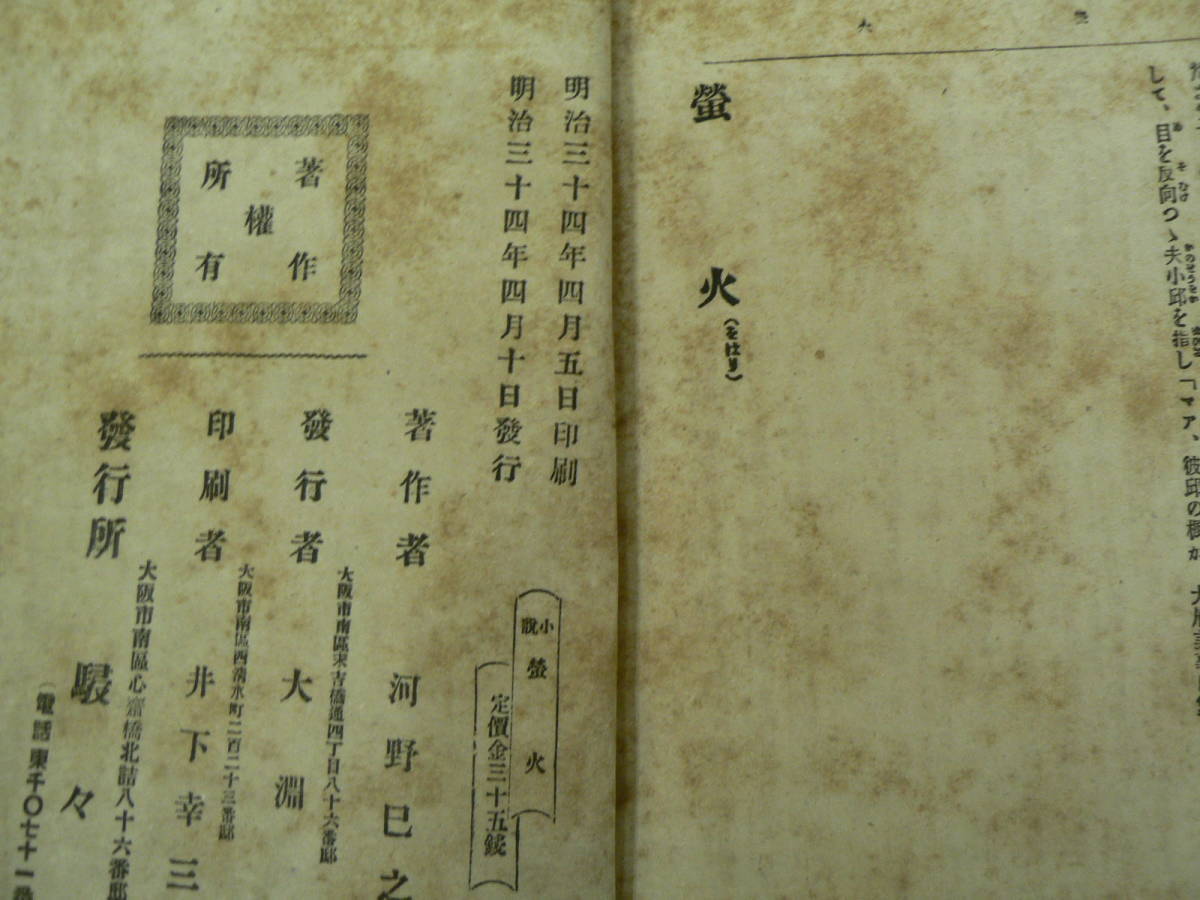 して、目を反向つゝ夫小邱を指し「マア、彼邱の樹が
螢火(をはり)
明治三十四年四月五日印刷
明治三十四年四月十日發行
小說 螢火
定價金三十五錢
著作權所有
著作者 河野巳之
大阪市南區末吉橋通四丁目八十六番邸
發行者 大淵
大阪市南區西淸水町二百二十三番邸
印刷者 井下幸三
大阪市南區心齋橋北詰八十六番邸
發行所 駸々
(電話東千〇七十一番